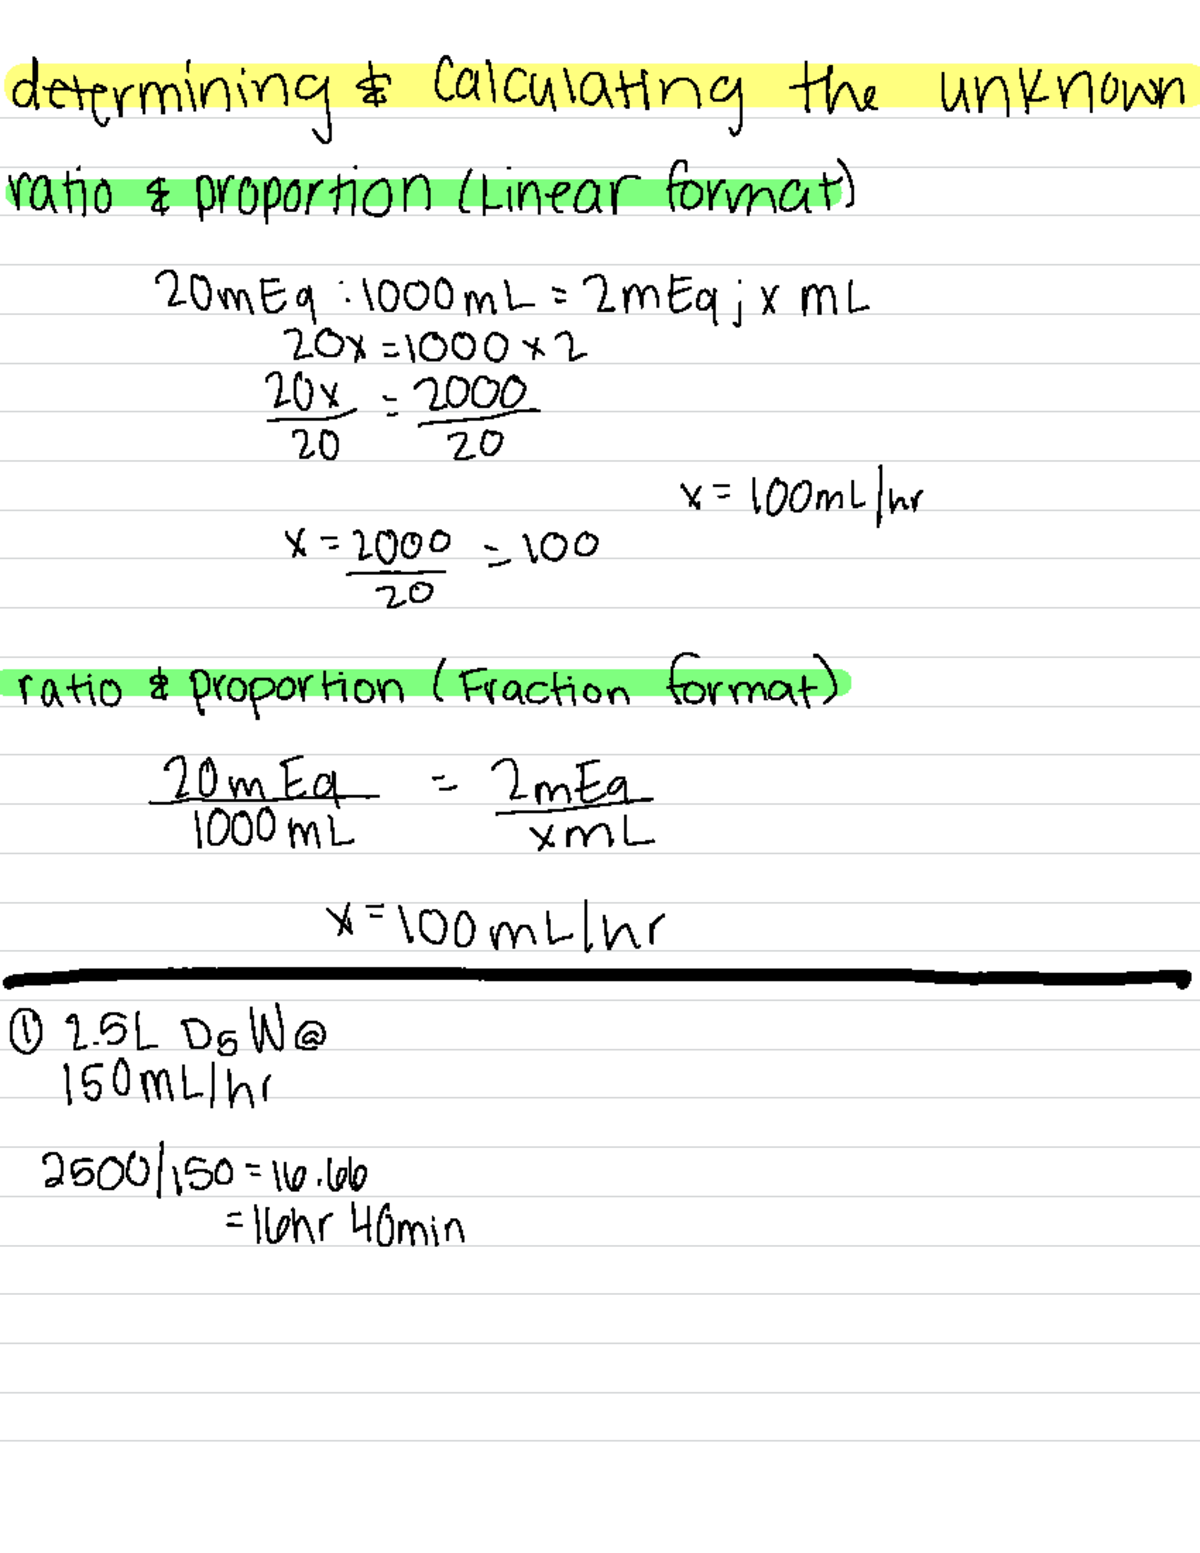 determining & Calculating the unknown
ratio & proportion (Linear format)
20mEq : 1000mL = 2mEq ; x mL
20x = 1000 x 2
20x = 2000
20 20
x = 100mL/hr
x = 2000 = 100
20
ratio & proportion (Fraction format)
20mEq = 2mEq
1000mL xmL
x = 100mL/hr
① 2.5L D5W @
150mL/hr
2500/150 = 16.66
= 16hr 40min